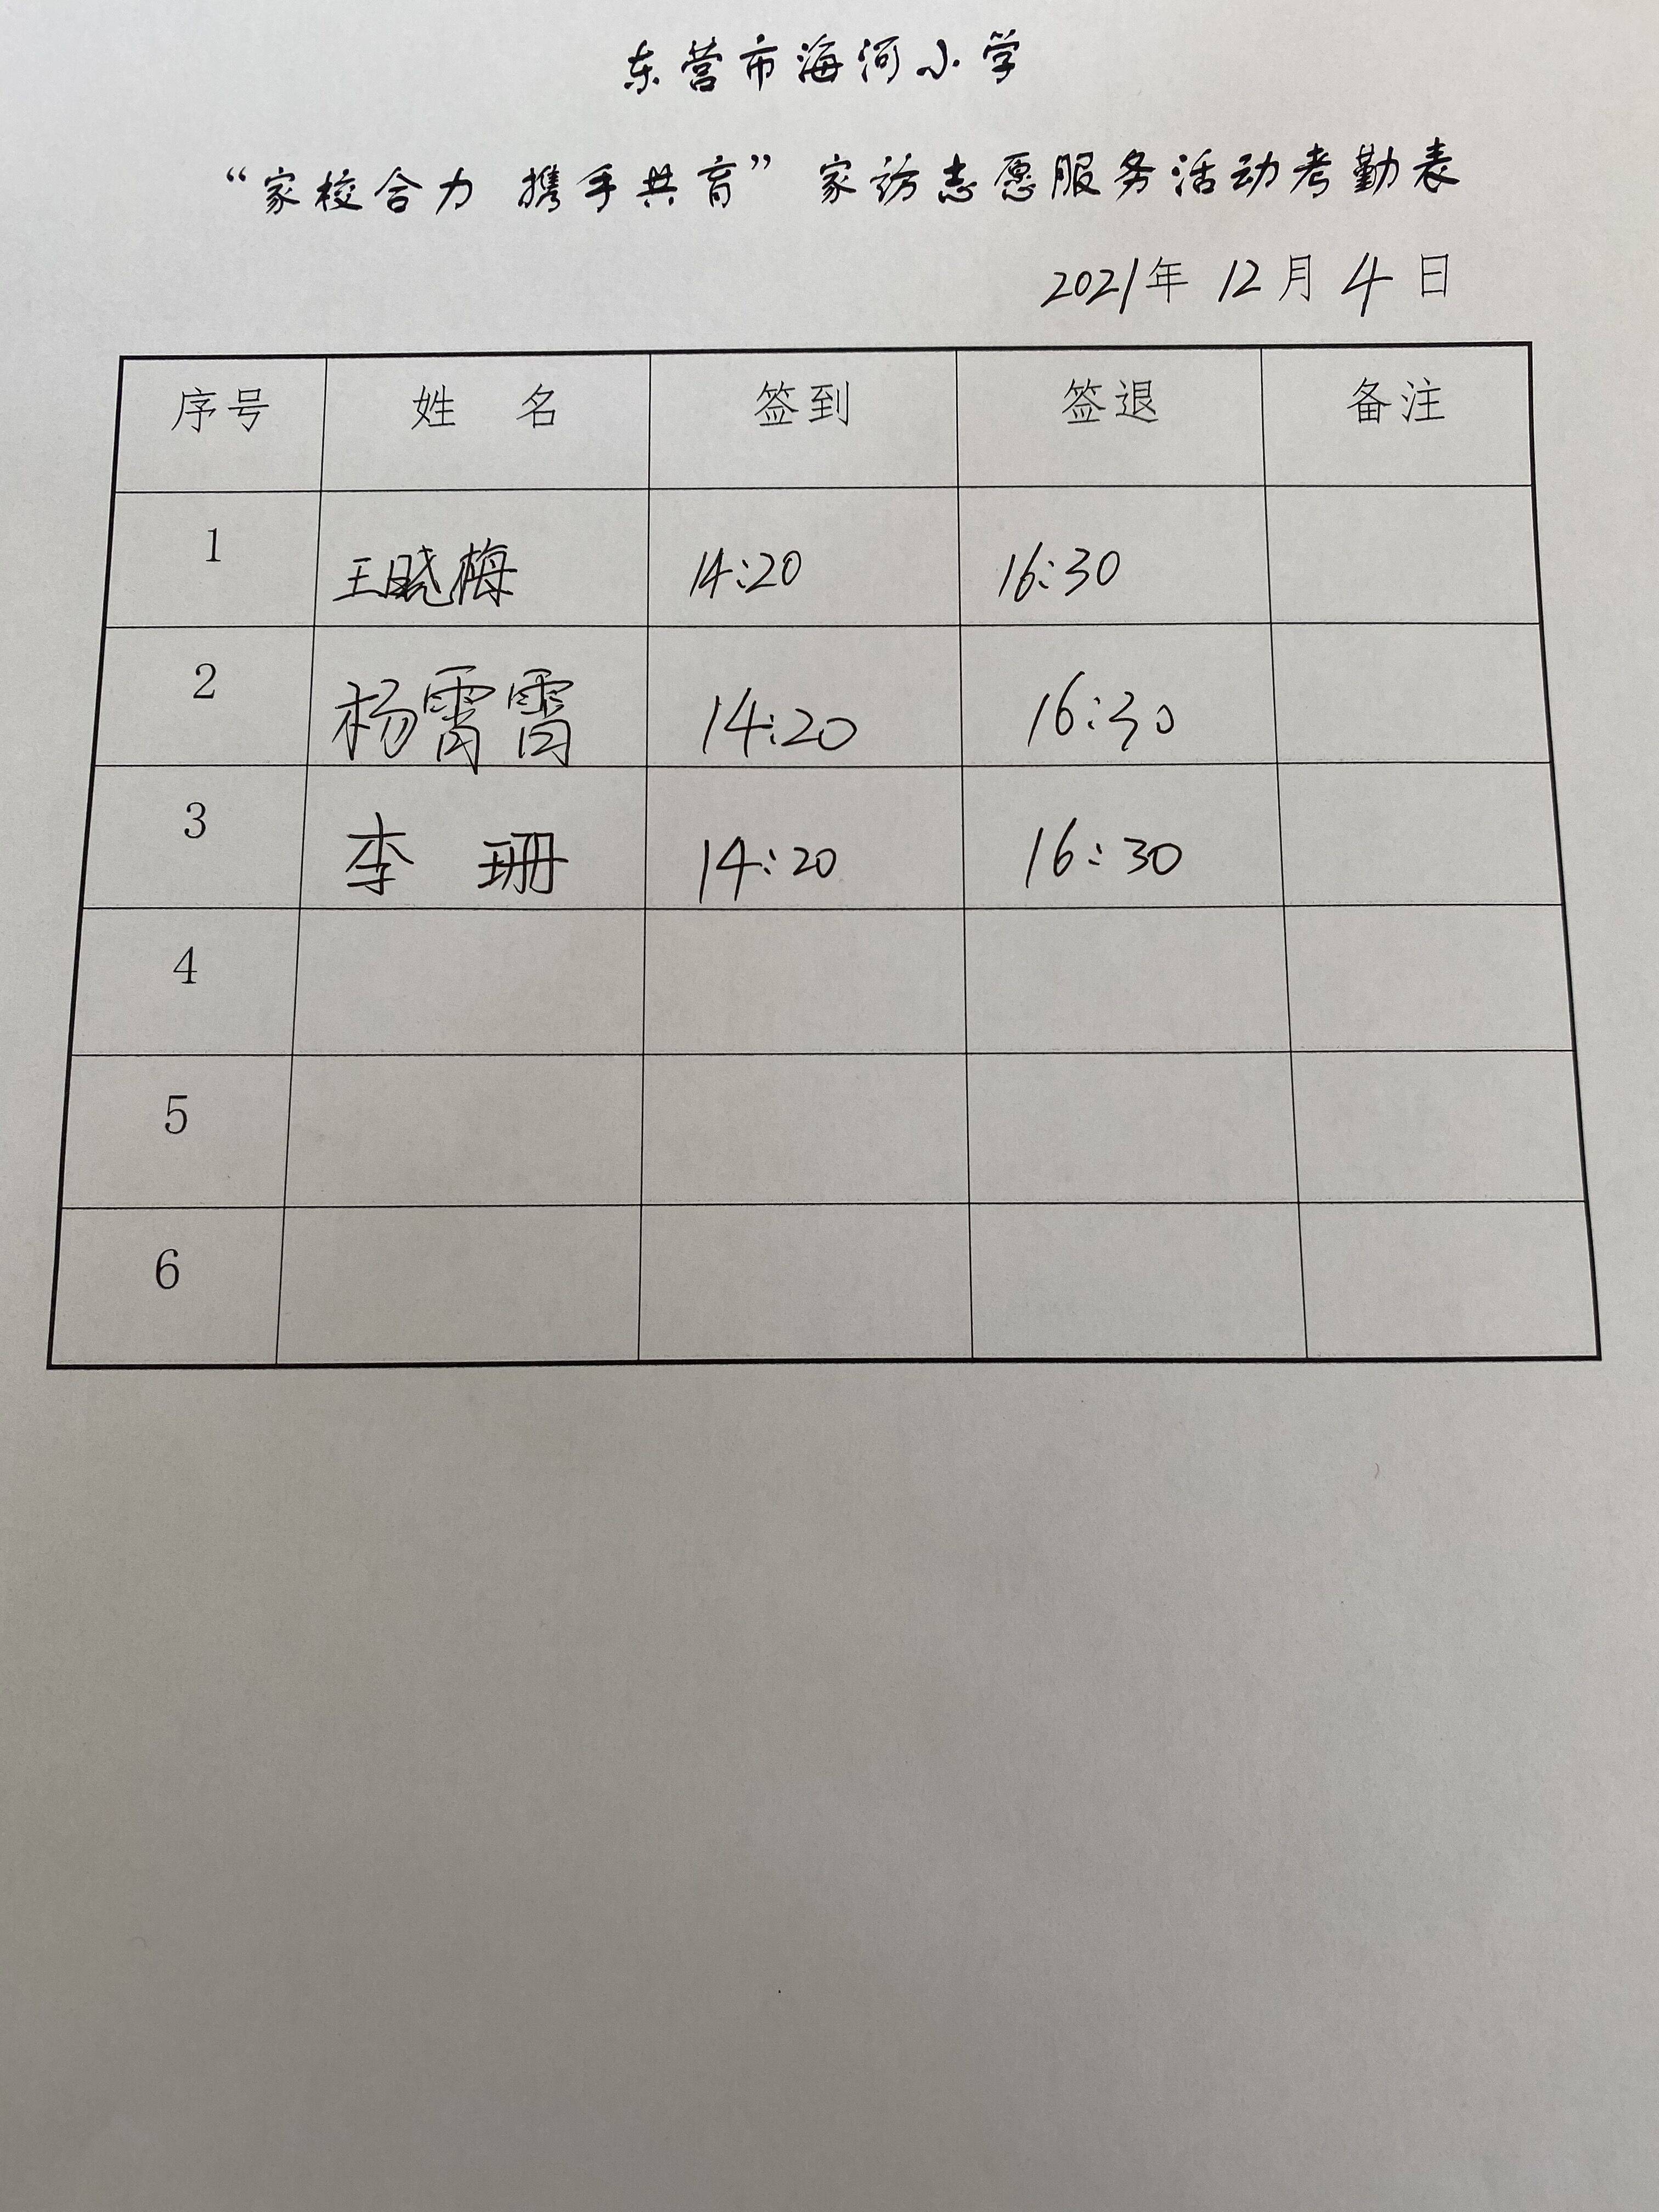 东营市海河小学
“家校合力 携手共育”家访志愿服务活动考勤表
2021年 12月 4日
序号 姓 名 签到 签退 备注
1 王晓梅 14:20 16:30
2 杨霄霄 14:20 16:30
3 李 珊 14:20 16:30
4
5
6